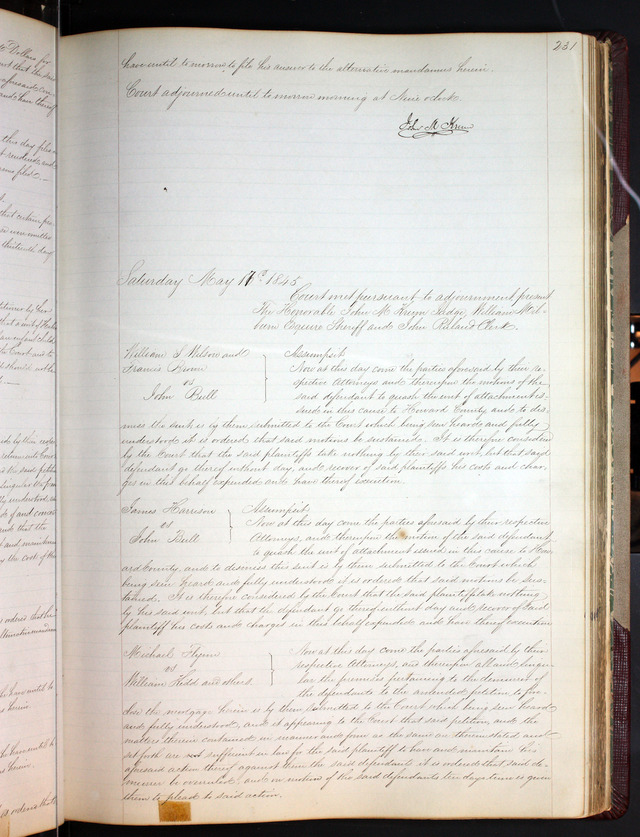 231
have until to morrow to file his answer to the alternative mandamus herein.
Court adjourned until to morrow morning at Nine oclock.
John M Krum
Saturday May 17th 1845
Court met pursuant to adjournment present
The Honorable John M Krum Judge, William Mil-
burn Esquire Sheriff and John Ruland Clerk.
William S Wilson and
Francis
vs
John Bull
Assumpsit
Now at this day come the parties aforesaid by their re-
spective Attorneys and thereupon the motions of the
said defendant to quash the writ of attachment is-
sued in this cause to Howard County, and to dis-
miss the suit is by them submitted to the Court which being seen heard and fully
understood it is ordered that said motions be sustained. It is therefore considered
by the Court that the said plaintiffs take nothing by their said writ, but that said
defendant go thereof without day, and recover of said plaintiffs his costs and char-
ges in this behalf expended and have thereof execution.
James Harrison
vs
John Bull
Assumpsit
Now at this day come the parties aforesaid by their respective
Attorneys, and thereupon the motion of the said defendant
to quash the writ of attachment issued in this cause to How-
ard County, and to dismiss this suit is by them submitted to the Court which
being seen heard and fully understood it is ordered that said motions be sus-
tained. It is therefore considered by the Court that the said plaintiff take nothing
by his said writ, but that the defendant go thereof without day and recover of said
plaintiff his costs and charges in this behalf expended and have thereof execution
Michael Flynn
vs
William and others
Now at this day come the parties aforesaid by their
respective Attorneys, and thereupon all and singu-
lar the premises pertaining to the demurrer of
the defendants to the amended petition to fore-
close the mortgage herein is by them submitted to the Court which being seen heard
and fully understood, and it appearing to the Court that said petition, and the
matters therein contained in manner and form as the same are therein stated and
set forth are sufficient in law for the said plaintiff to have and maintain his
aforesaid action thereof against them the said defendants it is ordered that said de-
murrer be overruled, and on motion of the said defendants ten days time is given
them to plead to said action.